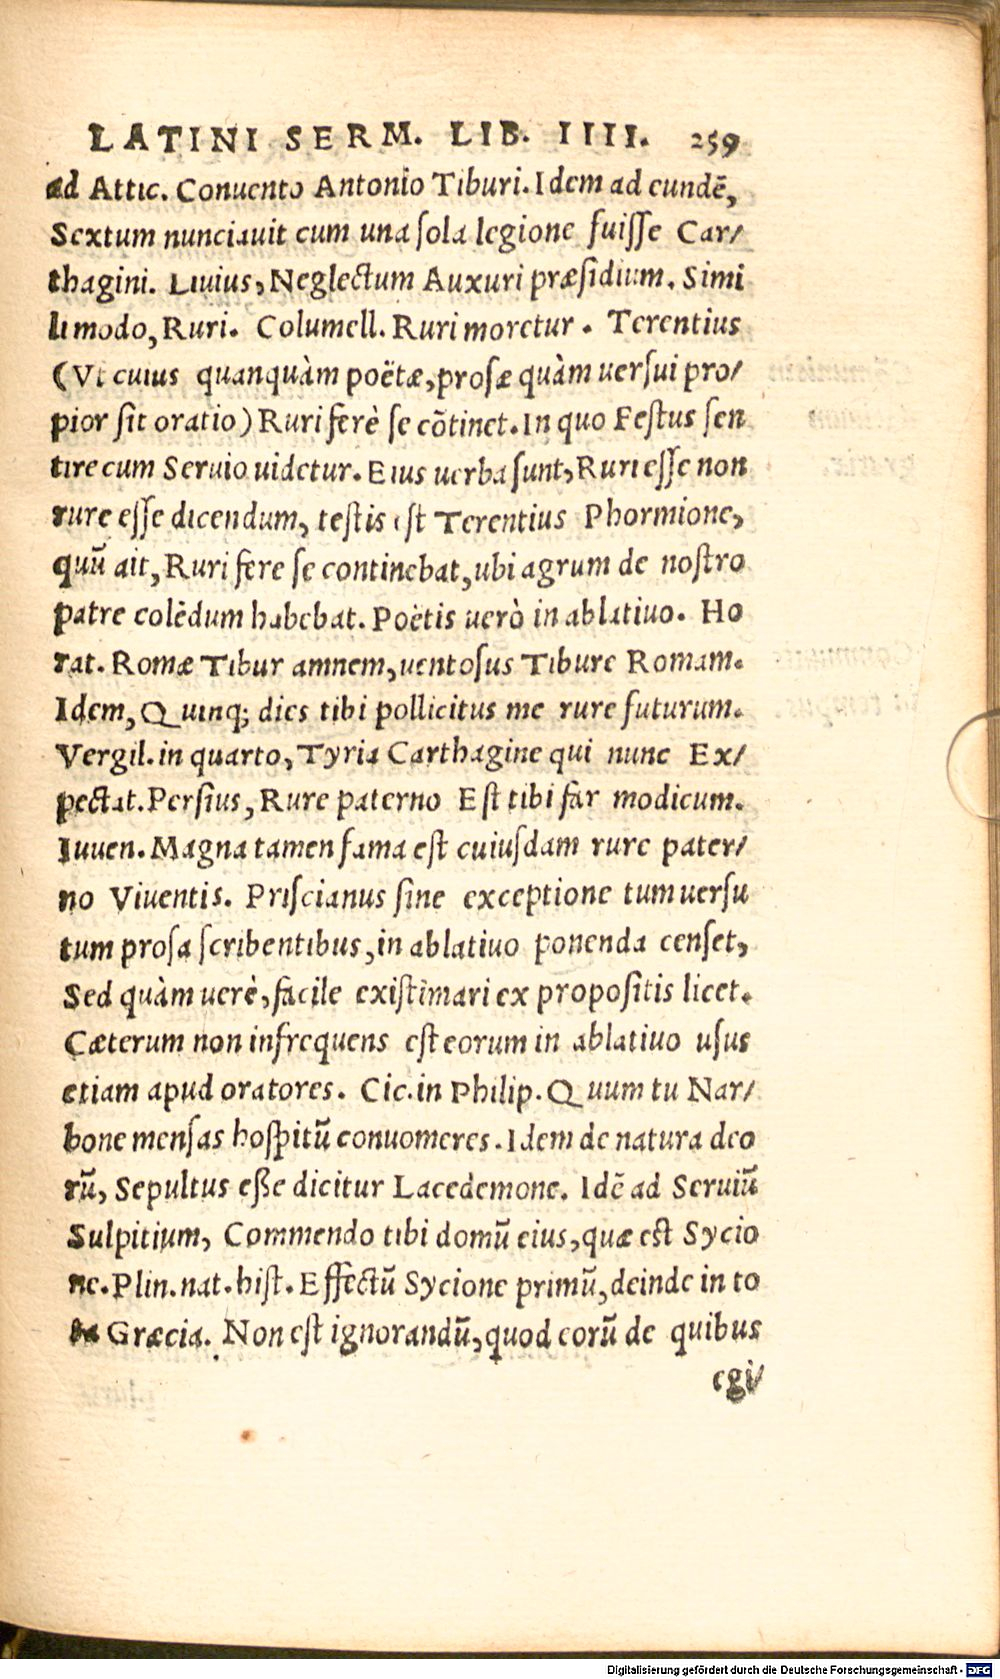 LATINI SERM. LIB. IIII. 259
ad Attic. Conuento Antonio Tiburi. Idem ad eundē,
Sextum nunciauit cum una sola legione fuisse Car/
thagini. Liuius, Neglectum Auxuri præsidium. Simi
li modo, Ruri. Columell. Ruri moretur. Terentius
(Vt cuius quanquàm poëtæ, prosæ quàm uersui pro/
pior sit oratio) Ruri ferè se cōtinet. In quo Festus sen
tire cum Seruio uidetur. Eius uerba sunt, Ruri esse non
rure esse dicendum, testis est Terentius Phormione,
quū ait, Ruri fere se continebat, ubi agrum de nostro
patre colēdum habebat. Poëtis uerò in ablatiuo. Ho
rat. Romæ Tibur amnem, uentosus Tibure Romam.
Idem, Quinq; dies tibi pollicitus me rure futurum.
Vergil. in quarto, Tyria Carthagine qui nunc Ex/
pectat. Persius, Rure paterno Est tibi far modicum.
Iuuen. Magna tamen fama est cuiusdam rure pater/
no Viuentis. Priscianus sine exceptione tum uersu
tum prosa scribentibus, in ablatiuo ponenda censet,
Sed quàm uerè, facile existimari ex propositis licet.
Cæterum non infrequens est eorum in ablatiuo usus
etiam apud oratores. Cic. in Philip. Quum tu Nar/
bone mensas hospitū conuomeres. Idem de natura deo
rū, Sepultus esse dicitur Lacedemone. Idē ad Seruiū
Sulpitium, Commendo tibi domū eius, quæ est Sycio
ne. Plin. nat. hist. Effectū Sycione primū, deinde in to
ta Græcia. Non est ignorandū, quod eorū de quibus
egi/
Digitalisierung gefördert durch die Deutsche Forschungsgemeinschaft - DFG